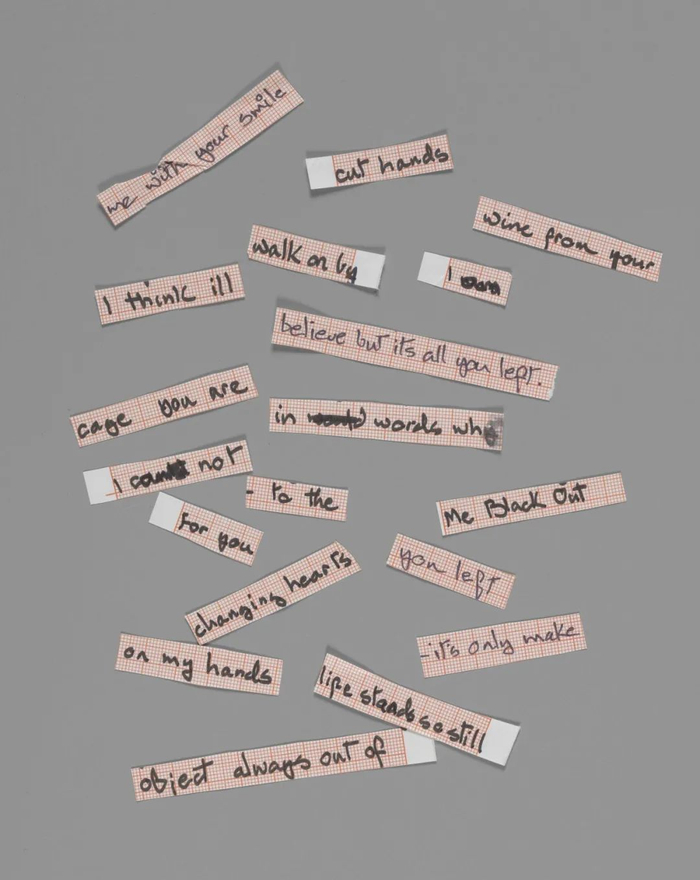 me with your smile
cut hands
wine from your
walk on by
I
I think ill
believe but it's all you left.
cage you are
in words
I not
- to the
Me Black Out
for you
you left
changing hearts
- it's only make
on my hands
life stands so still
object always out of